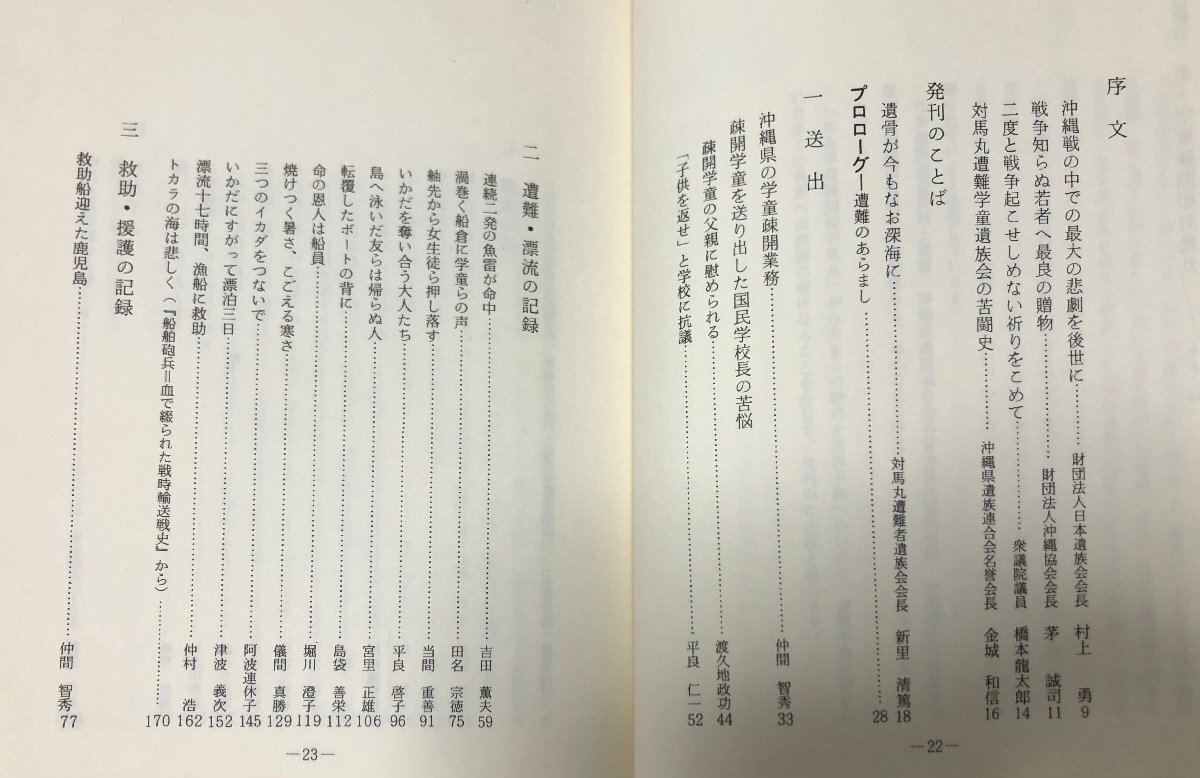 序文
沖縄戦の中での最大の悲劇を後世に…………財団法人日本遺族会会長 村上 勇 9
戦争知らぬ若者へ最良の贈物…………財団法人沖縄協会会長 茅 誠司 11
二度と戦争起こせしめない祈りをこめて…………衆議院議員 橋本龍太郎 14
対馬丸遭難学童遺族会の苦闘史…………沖縄県遺族連合会名誉会長 金城 和信 16
発刊のことば
遺骨が今もなお深海に…………対馬丸遭難者遺族会会長 新里 清篤 18
プロローグ―遭難のあらまし…………28
一 送出
沖縄県の学童疎開業務…………仲間 智秀 33
疎開学童を送り出した国民学校長の苦悩
疎開学童の父親に慰められる…………渡久地政功 44
「子供を返せ」と学校に抗議…………平良 仁一 52
―22―
二 遭難・漂流の記録
連続二発の魚雷が命中…………吉田 薫夫 59
渦巻く船倉に学童らの声…………田名 宗徳 75
舳先から女生徒ら押し落す…………当間 重善 91
いかだを奪い合う大人たち…………平良 啓子 96
島へ泳いだ友らは帰らぬ人…………宮里 正雄 106
転覆したボートの背に…………島袋 善栄 112
命の恩人は船員…………堀川 澄子 119
焼けつく暑さ、こごえる寒さ…………儀間 真勝 129
三つのイカダをつないで…………阿波連休子 145
いかだにすがって漂泊三日…………津波 義次 152
漂流十七時間、漁船に救助…………仲村 浩 162
トカラの海は悲しく(『船舶砲兵=血で綴られた戦時輸送戦史』から)…………170
三 救助・援護の記録
救助船迎えた鹿児島…………仲間 智秀 77
―23―